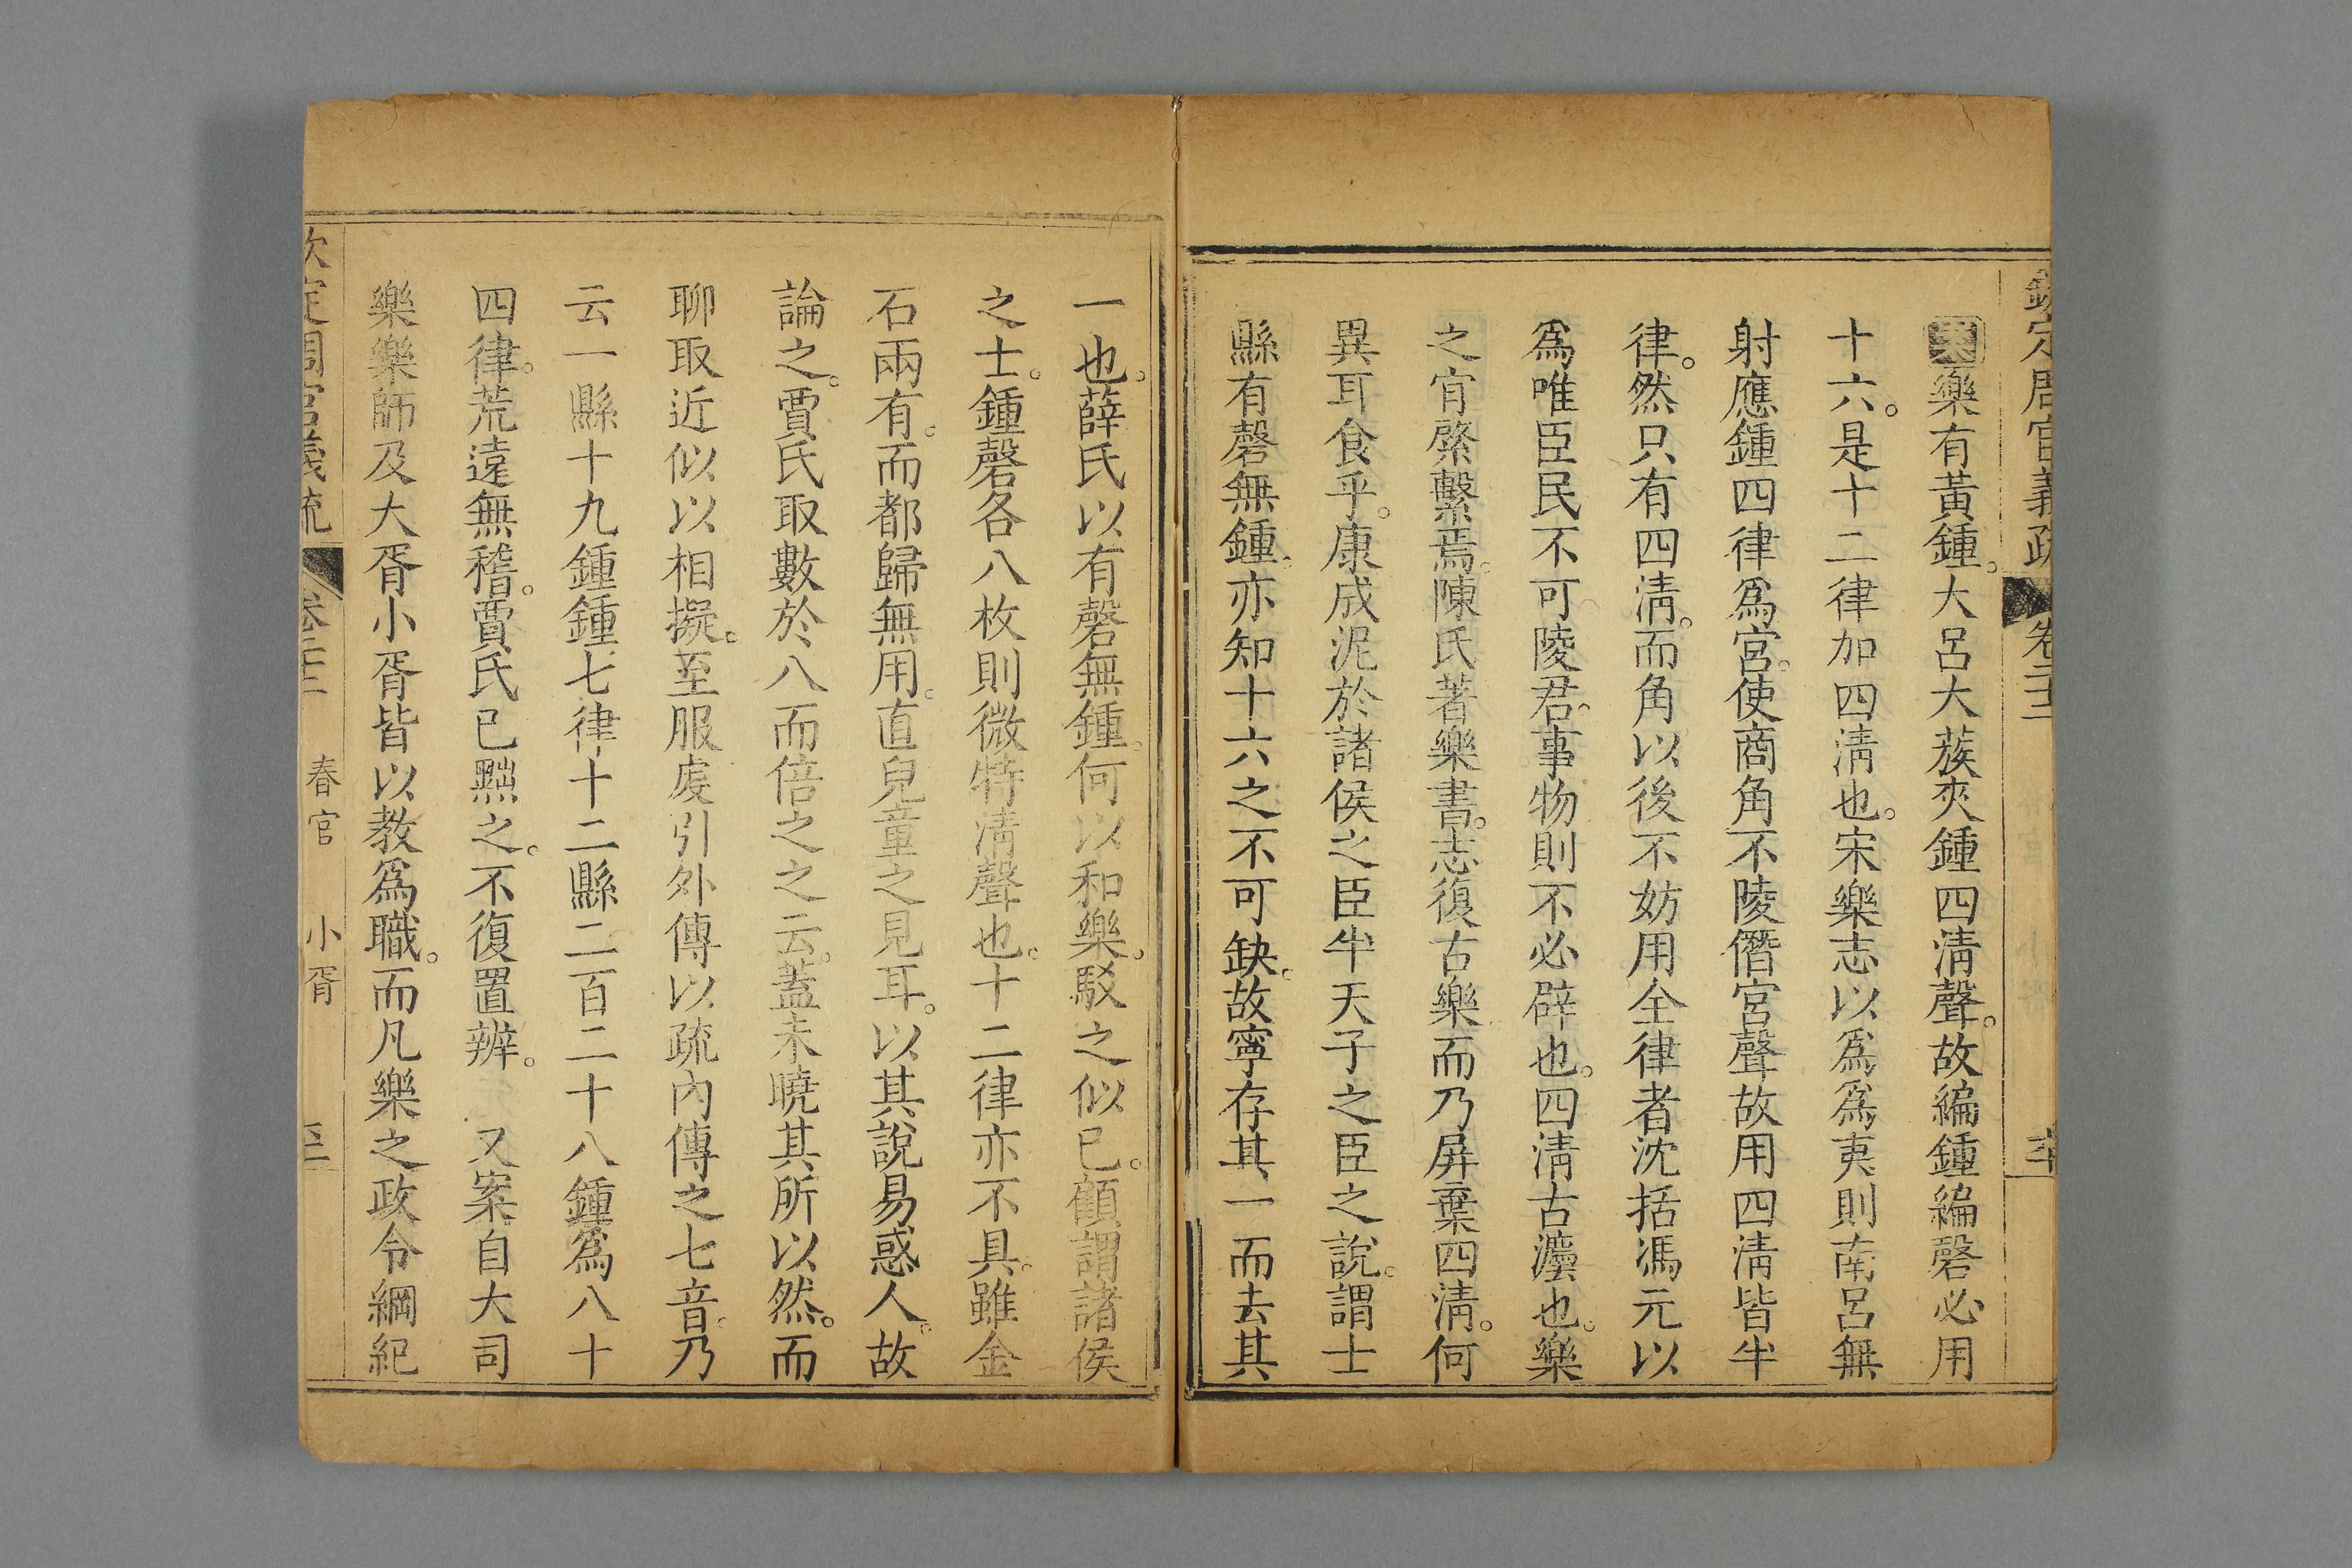 欽定周官義疏 卷二十二
案樂有黃鍾。大呂大蔟夾鍾四淸聲。故編鍾編磬必用
十六。是十二律加四淸也。宋樂志以爲爲夷則南呂無
射應鍾四律爲宮。使商角不陵僭宮聲故用四淸皆半
律。然只有四淸。而角以後不妨用全律者沈括馮元以
爲唯臣民不可陵君。事物則不必辟也。四淸古灋也。樂
之肯綮繫焉。陳氏著樂書。志復古樂而乃屏棄四淸。何
異耳食乎。康成泥於諸侯之臣半天子之臣之說。謂士
縣有磬無鍾。亦知十六之不可缺。故寧存其一而去其
一也。薛氏以有磬無鍾。何以和樂。駁之似已。顧謂諸侯
之士。鍾磬各八枚則微特淸聲也。十二律亦不具。雖金
石兩有。而都歸無用。直兒童之見耳。以其說易惑人。故
論之。賈氏取數於八而倍之之云。蓋未曉其所以然。而
聊取近似以相擬。至服虔引外傳以疏內傳之七音。乃
云一縣十九鍾鍾七律十二縣二百二十八鍾爲八十
四律。荒遠無稽。賈氏已黜之。不復置辨。 又案自大司
樂樂師及大胥小胥皆以教爲職。而凡樂之政令綱紀
欽定周官義疏 卷二十二 春官 小胥